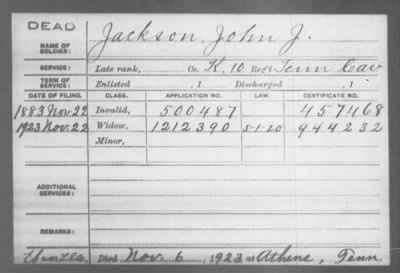 DEAD
NAME OF SOLDIER: Jackson, John J.
SERVICE: Late rank, Co. K, 10 Reg't Tenn Cav
TERM OF SERVICE: Enlisted , 1 Discharged , 1
DATE OF FILING. CLASS. APPLICATION NO. LAW. CERTIFICATE NO.
1883 Nov 22 Invalid, 500487 457468
1923 Nov. 22 Widow, 1212390 5-1-20 944232
Minor,
ADDITIONAL SERVICES:
REMARKS:
Died Nov. 6, 1923 at Athens, Tenn.